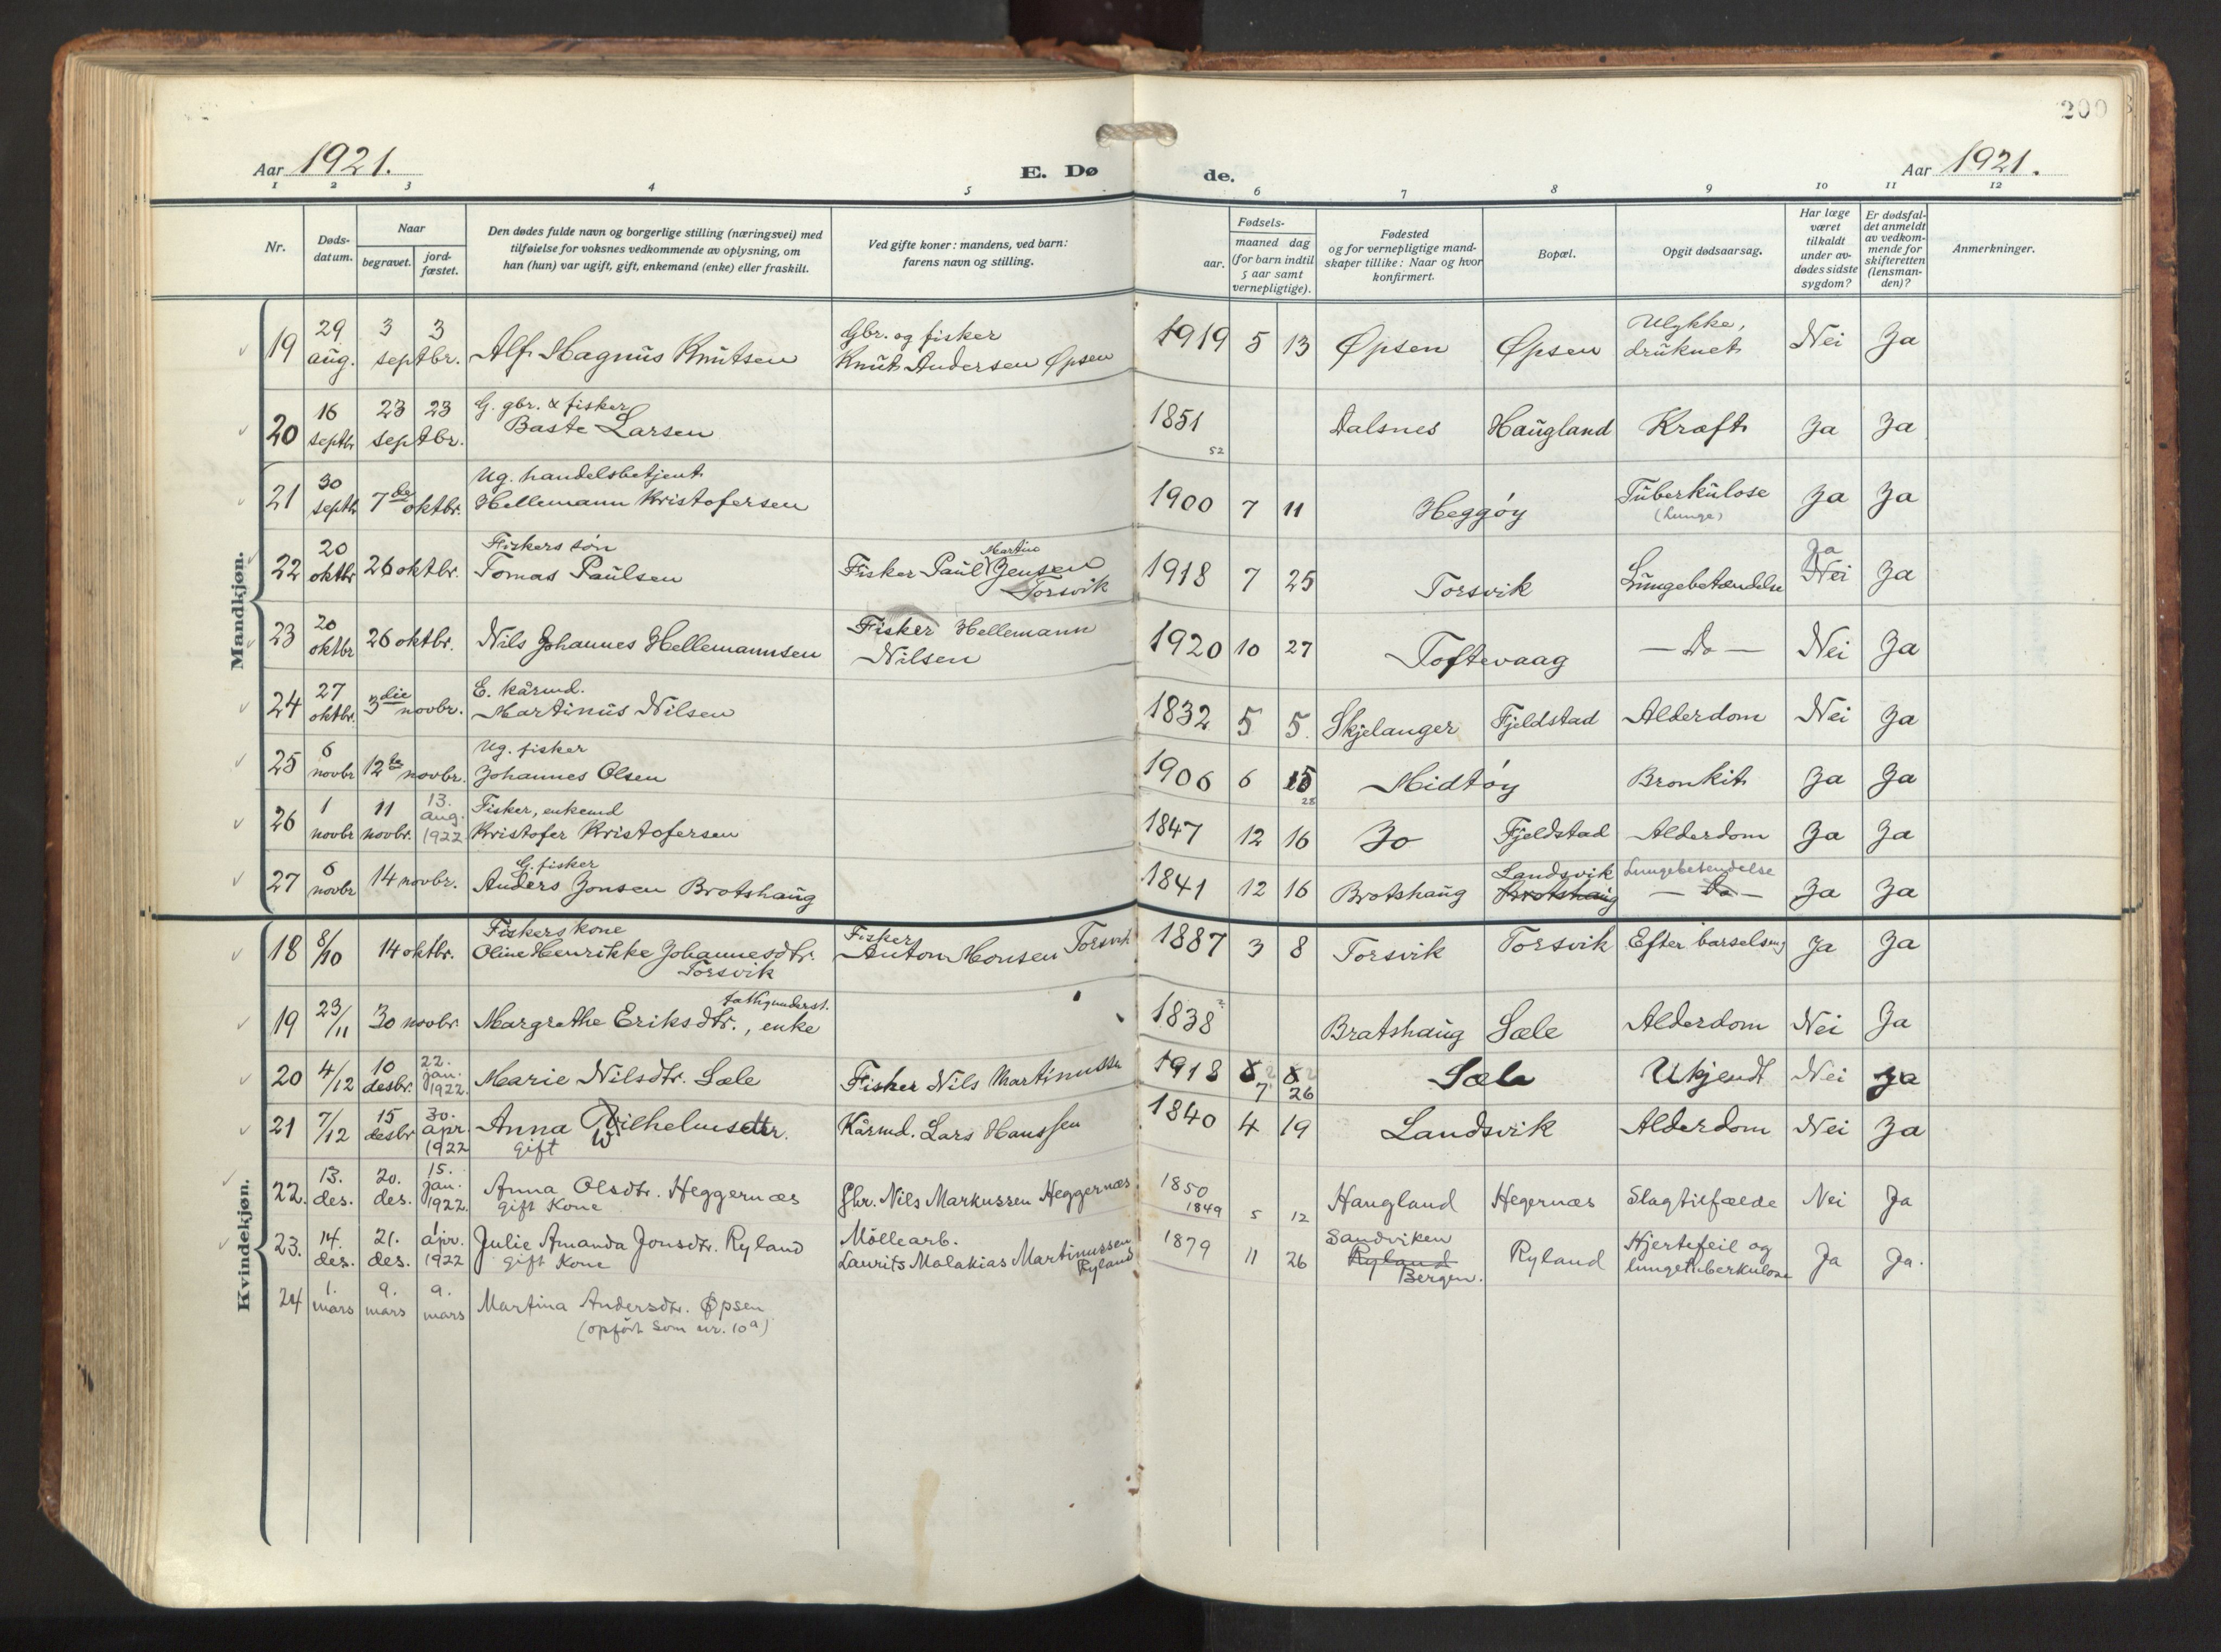 200
Aar 1921.
E. Dø de.
Aar 1921.
1 2 3 4 5 6 7 8 9 10 11 12
Nr.
Døds-
datum.
Naar
begravet.
jord-
fæstet.
Den dødes fulde navn og borgerlige stilling (næringsvei) med
tilføielse for voksnes vedkommende av oplysning, om
han (hun) var ugift, gift, enkemand (enke) eller fraskilt.
Ved gifte koner: mandens, ved barn:
farens navn og stilling.
Fødsels-
aar.
maaned dag
(for barn indtil
5 aar samt
vernepligtige).
Fødested
og for vernepligtige mand-
skaper tillike: Naar og hvor
konfirmert.
Bopæl.
Opgit dødsaarsag.
Har læge
været
tilkaldt
under av-
dødes sidste
sygdom?
Er dødsfal-
det anmeldt
av vedkom-
mende for
skifteretten
(lensman-
den)?
Anmerkninger.
Mandkjøn.
19 29 aug. 3 3 septbr. Alf Magnus Knutsen Gbr. og fisker Knut Andersen Øpsen 1919 5 13 Øpsen Øpsen Ulykke, druknet Nei Ja
20 16 septbr 23 23 septbr. G. gbr. & fisker Baste Larsen 1851 52 Dalsnes Haugland Kræft Ja Ja
21 30 septbr 7de oktbr. Ug. handelsbetjent Hellemann Kristofersen 1900 7 11 Heggøy Tuberkulose (Lunge) Ja Ja
22 20 oktbr 26 oktbr. Fiskers søn Tomas Paulsen Fisker Paul Martin Jensen Torsvik 1918 7 25 Torsvik Lungebetændelse Ja Nei Ja
23 20 oktbr 26 oktbr. Nils Johannes Hellemannsen Fisker Hellemann Nilsen 1920 10 27 Toftevaag — Do — Nei Ja
24 27 oktbr. 3die novbr. E. kårmd. Martinus Nilsen 1832 5 5. Skjelanger Fjeldstad Alderdom Nei Ja
25 6 novbr 12te novbr. Ug. fisker Johannes Olsen 1906 6 15 28 Midtøy Bronkit Ja Ja
26 1 novbr 11 novbr. 13. aug. 1922 Fisker, enkemd Kristofer Kristofersen 1847 12 16 Jo Fjeldstad Alderdom Ja Ja
27 6 novbr 14 novbr. G. fisker Anders Jonsen Brotshaug 1841 12 16 Brotshaug Landsvik Brotshaug Lungebetendelse — Do — Ja Ja
Kvindekjøn.
18 8/10 14 oktbr. Fiskers kone Oline Henrikke Johannesdtr. Torsvik Fisker Anton Monsen Torsvik 1887 3 8 Torsvik Torsvik Efter barselseng Ja Ja
19 23/11 30 novbr. Margrethe Eriksdtr., enke fattigunderst. 1838 Bratshaug Sæle Alderdom Nei Ja
20 4/12 10 desbr. 22. jan. 1922. Marie Nilsdtr. Sæle Fisker Nils Martinussen 1918 8 7 8 26 Sæle Ukjendt Nei Ja
21 7/12 15 desbr 30. apr. 1922 Anna Wilhelmsdtr. gift Kårmd. Lars Hanssen 1840 4 19 Landsvik Alderdom Nei Ja
22. 13. des. 20. des. 15. jan. 1922. Anna Olsdtr. Heggernæs gift kone Gbr. Nils Markussen Heggernæs 1850 1849 5 12 Haugland Hegernæs Slagtilfælde Nei Ja
23. 14. des. 21. des. 1. apr. 1922 Julie Amanda Jonsdtr. Ryland gift kone Möllearb. Laurits Malakias Martinussen Ryland 1879 11 26 Sandviken Ryland Bergen. Ryland Hjertefeil og lungetuberkulose Ja Ja.
24 1. mars 9. mars 9. mars Martina Andersdtr. Øpsen (opført som nr. 10a)